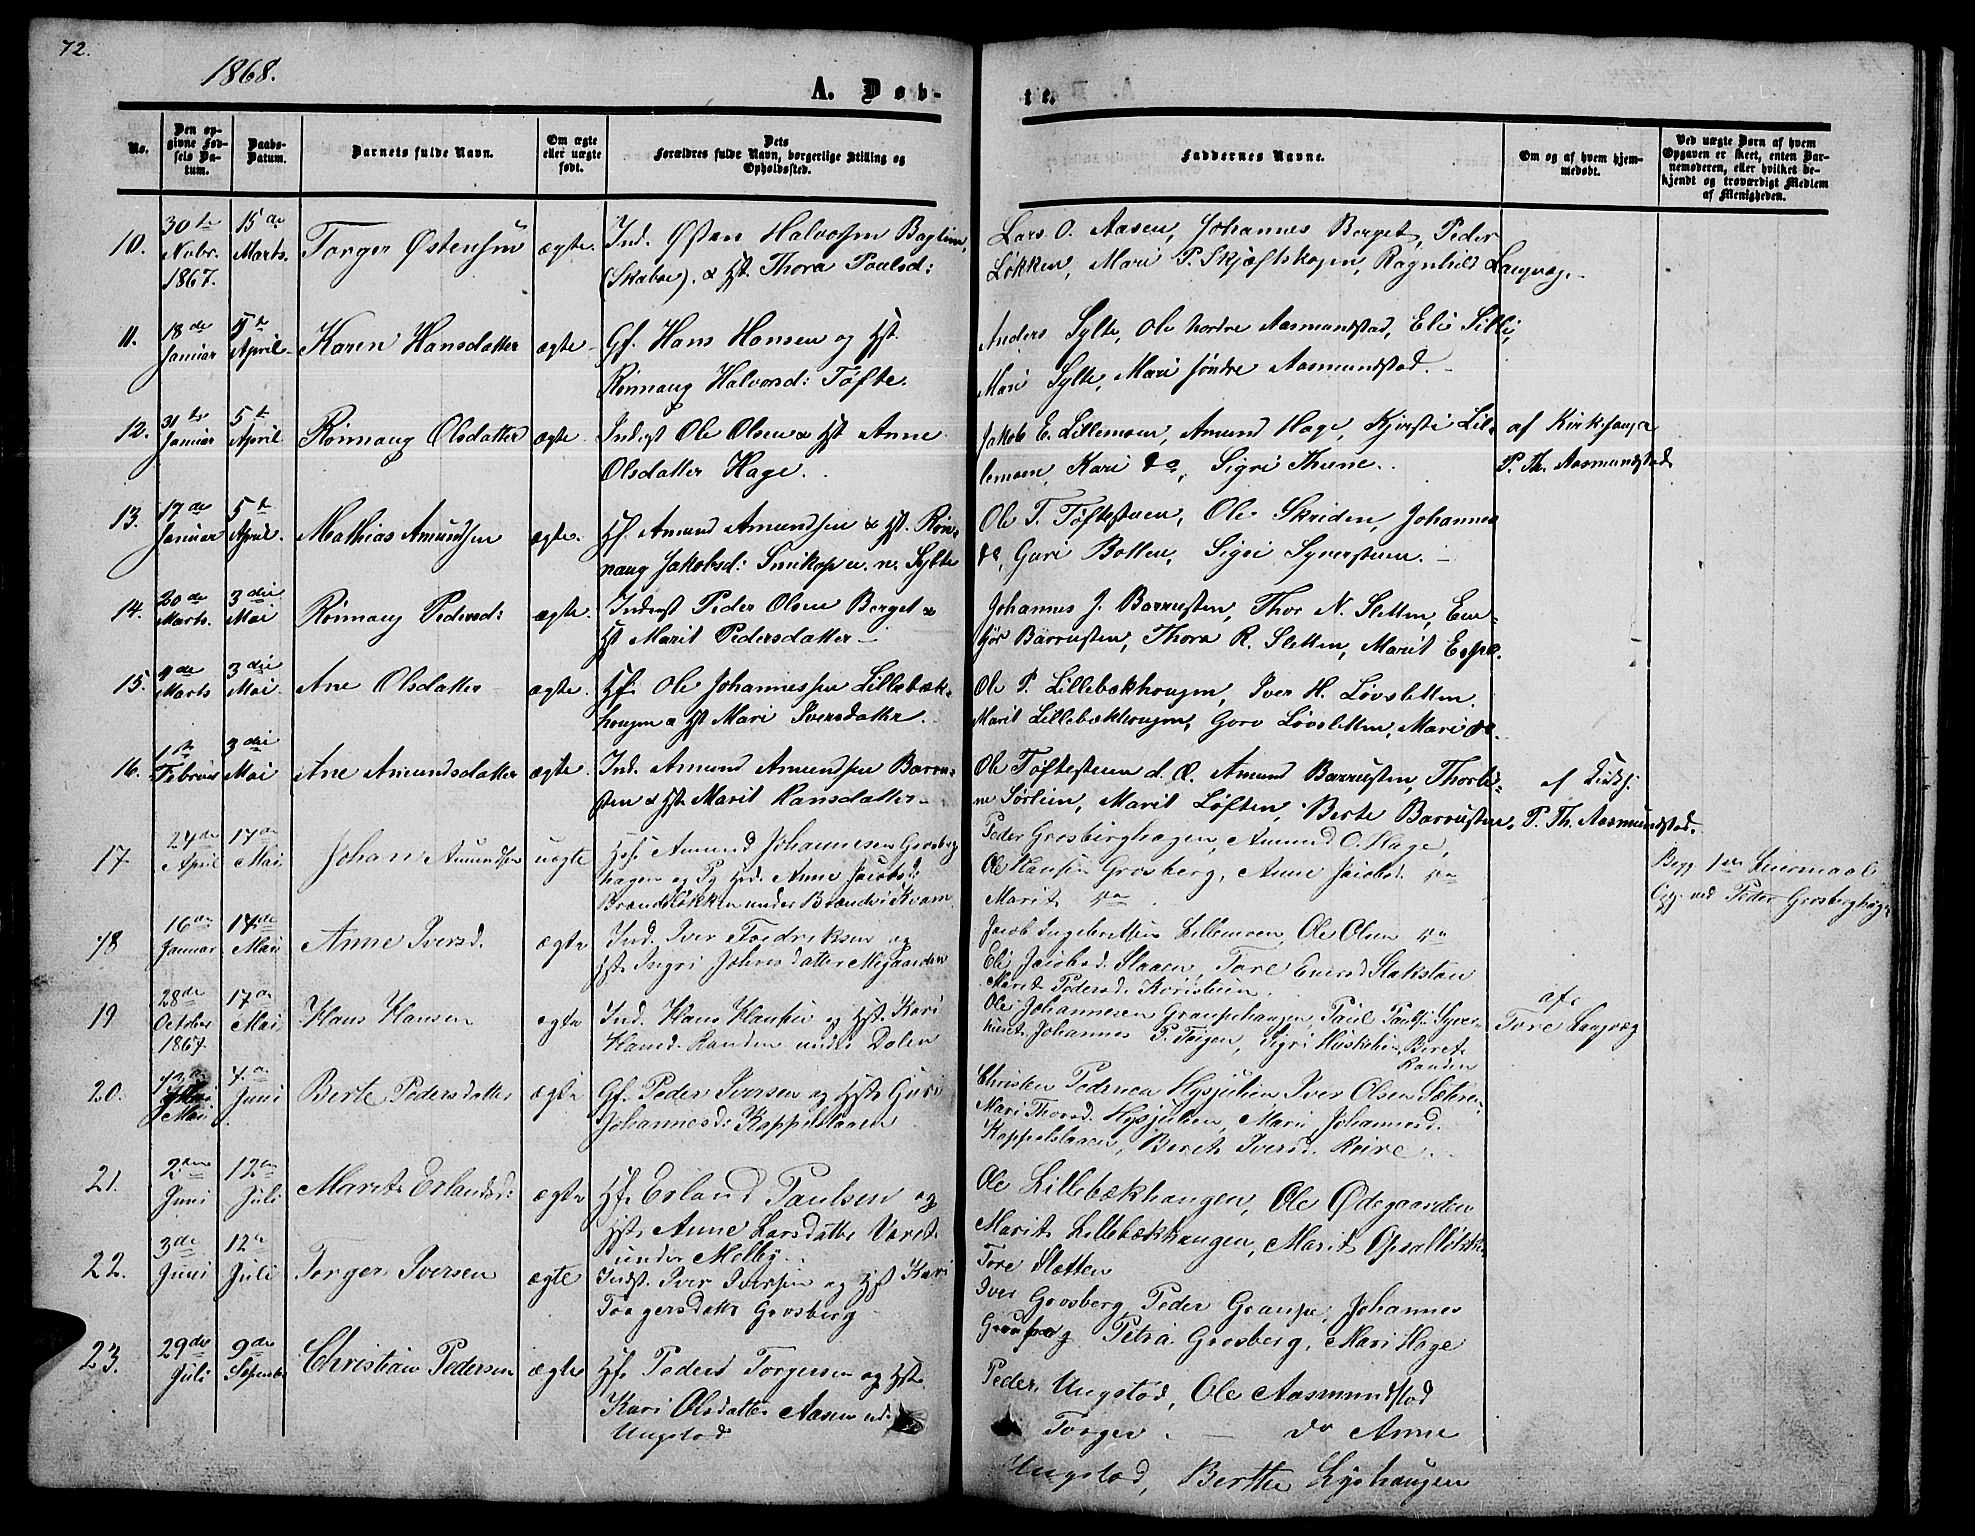 72.
1868.
A. Døb-
te.
No.
Den op-
givne Fød-
sels Da-
tum.
Daabs-
Datum.
Barnets fulde Navn.
Om ægte
eller uægte
født.
Dets
Forældres fulde Navn, borgerlige Stilling og
Opholdssted.
Faddernes Navne.
Om og af hvem hjem-
medøbt.
Ved uægte Børn af hvem
Opgaven er skeet, enten Bar-
nemoderen, eller hvilket be-
kjendt og troværdigt Medlem
af Menigheden.
10. 30te Novbr. 1867. 15de Marts. Torger Østensen ægte. Ind. Østen Halvorsen Baglien,
(Skabo). & Hst. Thora Poulsd:
Lars O. Aasen, Johannes Berget, Peder
Løkken, Mari P. Skjæftskogen, Ragnhild Laugvag.
11. 18de Januar 5te April Karen Hansdatter ægte Gf. Hans Hansen og Hst.
Rønnaug Halvorsd: Tøfte.
Anders Sylte, Ole nordre Aasmundstad, Eli Sylte,
Mari Sylte, Mari søndre Aasmundstad.
12. 31te Januar 5te April Rønnaug Olsdatter ægte Inderst Ole Olsen & Hst Anne
Olsdatter Hage.
Jakob E. Lillemoen, Amund Hage, Kjersti Lil-
lemoen, Kari do, Sigri Thune.
af Kirkesanger
P. Th. Aasmundstad
13. 17de Januar 5te April. Mathias Amundsen ægte. Hf. Amund Amundsen & Hst. Røn-
naug Jakobsd: Smikop u. n. Sylte
Ole T. Tøftestuen, Ole Skriden, Johannes
do, Guri Botten, Sigri Syverstuen.
14. 20de Marts. 3die Mai Rønnaug Pedersd: ægte. Inderst Peder Olsen Berget &
Hst Marit Pedersdatter
Johannes J. Barrusten, Thor N. Sletten, Em-
bjør Barrusten, Thora R. Sletten, Marit Espe.
15. 9de Marts 3die Mai. Ane Olsdatter ægte. Hf. Ole Johannessen Lillebæk-
hougen & Hst Mari Iversdatter.
Ole P. Lillebækhougen, Iver H. Løvsletten.
Marit Lillebækhougen, Goro Løvsletten, Mari do.
16. 1ste Februar 3die Mai Ane Amundsdatter ægte. Ind. Amund Amundsen Barru-
sten & Hst. Marit Hansdatter
Ole Tøftestuen d. Æ. Amund Barrusten, Thorbi-
ne Sørlien, Marit Løften, Berte Barrusten.
af Kirkes:
P. Th. Aasmundstad.
17 24de April 17de Mai Johan Amundsen uægte Hsf. Amund Johannesen Grosberg
hagen og Pg Hd. Anne Jacobsd:
Brændløkken under Brænden i Kvam
Peder Grosberghagen, Amund O. Hage,
Ole Hansen Grosberg, Anne Jacobsd. do
Marit do
Begg. 1ste Leiermaal
Opg. ved Peder Grosberghagen
18 16de Januar 17de Mai Anne Iversd. ægte Ind. Iver Fredriksen og
Hst. Ingri Johnsdatter Megaarden
Jacob Ingebretsen Lillemoen, Ole Olsen do
Eli Jacobsd. Slaaen, Tore Slatsten
Marit Pedersd.
19 28de October 1867 17de Mai Hans Hansen ægte Ind. Hans Hansen og Hst. Kari
Hansd. Randen under Dalen
Ole Johannesen Graupehaugen, Paul Paulsen Syver-
huset Johannes P. Teigen, Sigri Huskelien, Beret
Randen
af
Tore Laugvag
20. Mai Juni Berte Pedersdatter ægte Gf. Peder Iversen og Hst. Guri
Johannesd: Kappelslaaen
Christen Pedersen Hysjulien Iver Olsen Sætre
Mari Thorsd. Hysjulien, Mari Johannesd.
Kappelslaaen, Berit Iversd. Roire.
21. 2den Juni 12te Juli Marit Erlandsd: ægte Hf. Erland Paulsen og
Hst. Anne Larsdatter Voret
under Melby.
Ole Lillebækhaugen, Ole Ødegaarden
Marit Lillebækhaugen, Marit Opsalløkke
Tore Sletten
22. 3de Juni 12te Juli Torger Iversen ægte Indst. Iver Iversen og Hst Kari
Torgersdatter Grosberg
Iver Grosberg, Peder Graupe, Johannes
Petra Grosberg, Mari Hage
23. 29de Juli 9de September Christian Pedersen ægte Hf. Peder Torgersen og Hst.
Kari Olsdatter Aasen und.
Ungstad
Peder Ungstad, Ole Aasmundstad
Torger do Anne
Ungstad, Berthe Lyshaugen